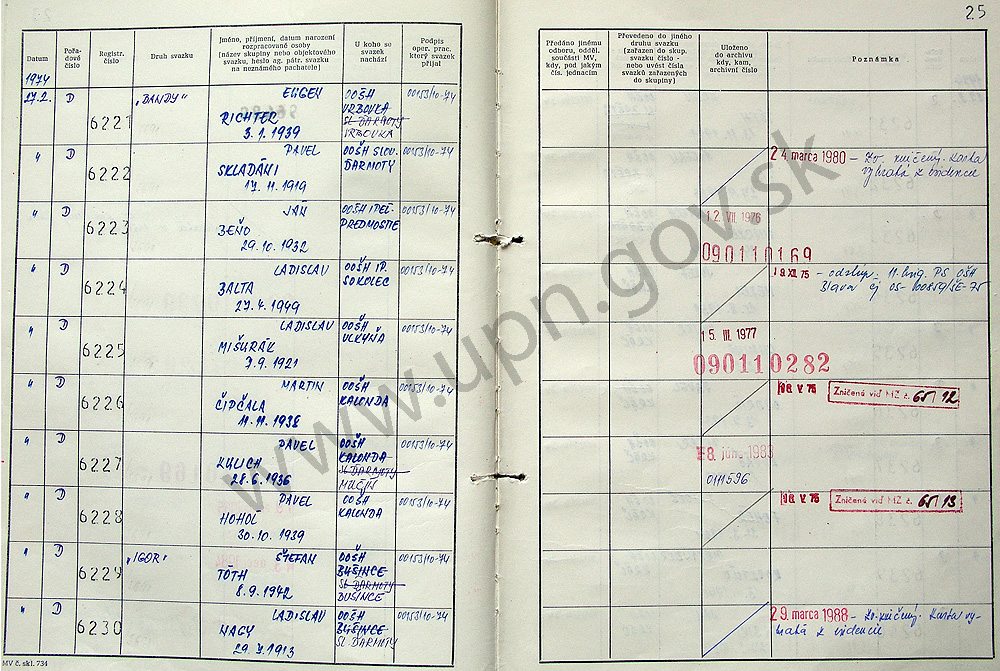 25
Datum
Pořa-
dové
číslo
Registr.
číslo
Druh svazku
Jméno, příjmení, datum narození
rozpracované osoby
(název skupiny nebo objektového
svazku, heslo ag. pátr. svazku
na neznámého pachatele)
U koho se
svazek
nachází
Podpis
oper. prac.
který svazek
přijal
Předáno jinému
odboru, odděl.
součásti MV,
kdy, pod jakým
čís. jednacím
Převedeno do jiného
druhu svazku
(zařazen do skup.
svazku číslo -
nebo uvést čísla
svazků zařazených
do skupiny)
Uloženo
do archivu
kdy, kam,
archivní číslo
Poznámka
1974
27.2. D 6221 „DANDY" EUGEN
RICHTER
3.1.1939
OOŠH
VRBOVKA
SL. ĎARMOTY
VRBOVKA
00153/10-74
" D 6222 PAVEL
SKLADÁNI
17.11.1919
OOŠH SLOV.
ĎARMOTY
00153/10-74
24. marca 1980 – Zv. zničený. Karta
vybratá z evidencie
" D 6223 JÁN
BEŇO
29.10.1932
OOŠH IPEĽ.
PREDMOSTIE
00153/10-74
12. VII. 1976
090110169
" D 6224 LADISLAV
BALTA
27.4.1949
OOŠH IP.
SOKOLEC
00153/10-74
18 XII. 75 – odstúp. 11. bng. PS OŠH
" D 6225 LADISLAV
MIŠURÁK
7.9.1921
OOŠH
VLKYŇA
00153/10-74
15. III. 1977
090110282
" D 6226 MARTIN
ČIPČALA
11.11.1938
OOŠH
KALONDA
00153/10-74
V. 75 Zničené viď MZ č. 65/12
" D 6227 PAVEL
KULICH
28.6.1936
OOŠH
KALONDA
SL. ĎARMOTY
00153/10-74
8. júna 1983
0111596
" D 6228 PAVEL
HOHOL
30.10.1939
OOŠH
KALONDA
00153/10-74
V. 75 Zničené viď MZ č. 65/13
" D 6229 „IGOR" ŠTEFAN
TÓTH
8.9.1942
OOŠH
BUŠINCE
SL. ĎARMOTY
BUŠINCE
00153/10-74
" D 6230 LADISLAV
NAGY
29.7.1913
OOŠH
BUŠINCE
SL. ĎARMOTY
00153/10-74
29. marca 1988 – Zv. zničený. Karta vy-
bratá z evidencie
MV č. skl. 734
www.upn.gov.sk